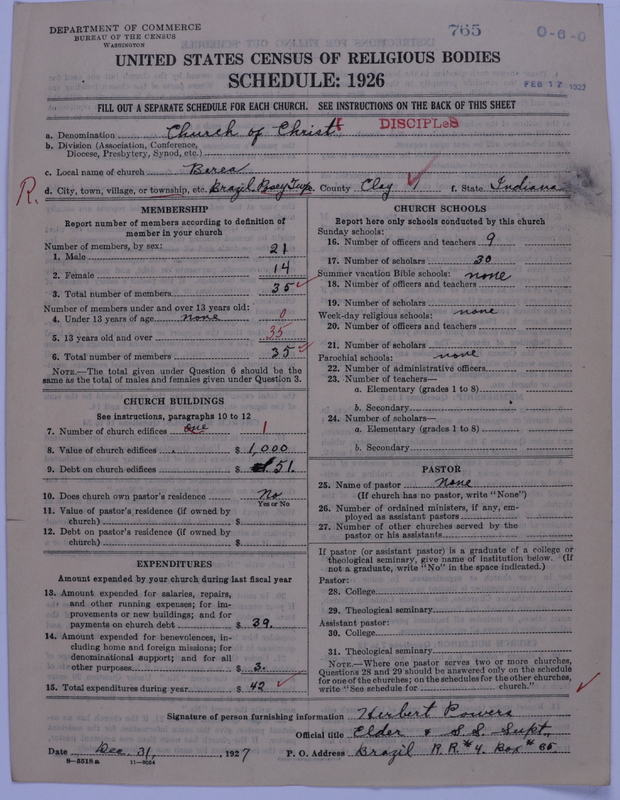 DEPARTMENT OF COMMERCE
BUREAU OF THE CENSUS
WASHINGTON
765
0-6-0
UNITED STATES CENSUS OF RELIGIOUS BODIES
SCHEDULE: 1926
FEB 17 1927
FILL OUT A SEPARATE SCHEDULE FOR EACH CHURCH. SEE INSTRUCTIONS ON THE BACK OF THIS SHEET
a. Denomination Church of Christ DISCIPLES
b. Division (Association, Conference, Diocese, Presbytery, Synod, etc.)
c. Local name of church Berea
R.
d. City, town, village, or township, etc. Brazil Posey Twp. County Clay f. State Indiana
MEMBERSHIP
Report number of members according to definition of member in your church
Number of members, by sex:
1. Male 21
2. Female 14
3. Total number of members 35
Number of members under and over 13 years old:
4. Under 13 years of age none 0
5. 13 years old and over 35
6. Total number of members 35
NOTE.—The total given under Question 6 should be the same as the total of males and females given under Question 3.
CHURCH BUILDINGS
See instructions, paragraphs 10 to 12
7. Number of church edifices one 1
8. Value of church edifices $ 1,000
9. Debt on church edifices $ 51.
10. Does church own pastor's residence No
Yes or No
11. Value of pastor's residence (if owned by church) $
12. Debt on pastor's residence (if owned by church) $
EXPENDITURES
Amount expended by your church during last fiscal year
13. Amount expended for salaries, repairs, and other running expenses; for improvements or new buildings; and for payments on church debt $ 39.
14. Amount expended for benevolences, including home and foreign missions; for denominational support; and for all other purposes $ 3.
15. Total expenditures during year $ 42
CHURCH SCHOOLS
Report here only schools conducted by this church
Sunday schools:
16. Number of officers and teachers 9
17. Number of scholars 30
Summer vacation Bible schools: none
18. Number of officers and teachers
19. Number of scholars
Week-day religious schools: none
20. Number of officers and teachers
21. Number of scholars
Parochial schools: none
22. Number of administrative officers
23. Number of teachers—
a. Elementary (grades 1 to 8)
b. Secondary
24. Number of scholars—
a. Elementary (grades 1 to 8)
b. Secondary
PASTOR
25. Name of pastor None
(If church has no pastor, write "None")
26. Number of ordained ministers, if any, employed as assistant pastors
27. Number of other churches served by the pastor or his assistants
If pastor (or assistant pastor) is a graduate of a college or theological seminary, give name of institution below. (If not a graduate, write "No" in the space indicated.)
Pastor:
28. College
29. Theological seminary
Assistant pastor:
30. College
31. Theological seminary
NOTE.—Where one pastor serves two or more churches, Questions 28 and 29 should be answered only on the schedule for one of the churches; on the schedules for the other churches, write "See schedule for church."
Signature of person furnishing information Herbert Powers
Official title Elder & S.S. Supt.
Date Dec. 31, 1927 P. O. Address Brazil R.R.#4. Box #65.
8-5518a 11-9024